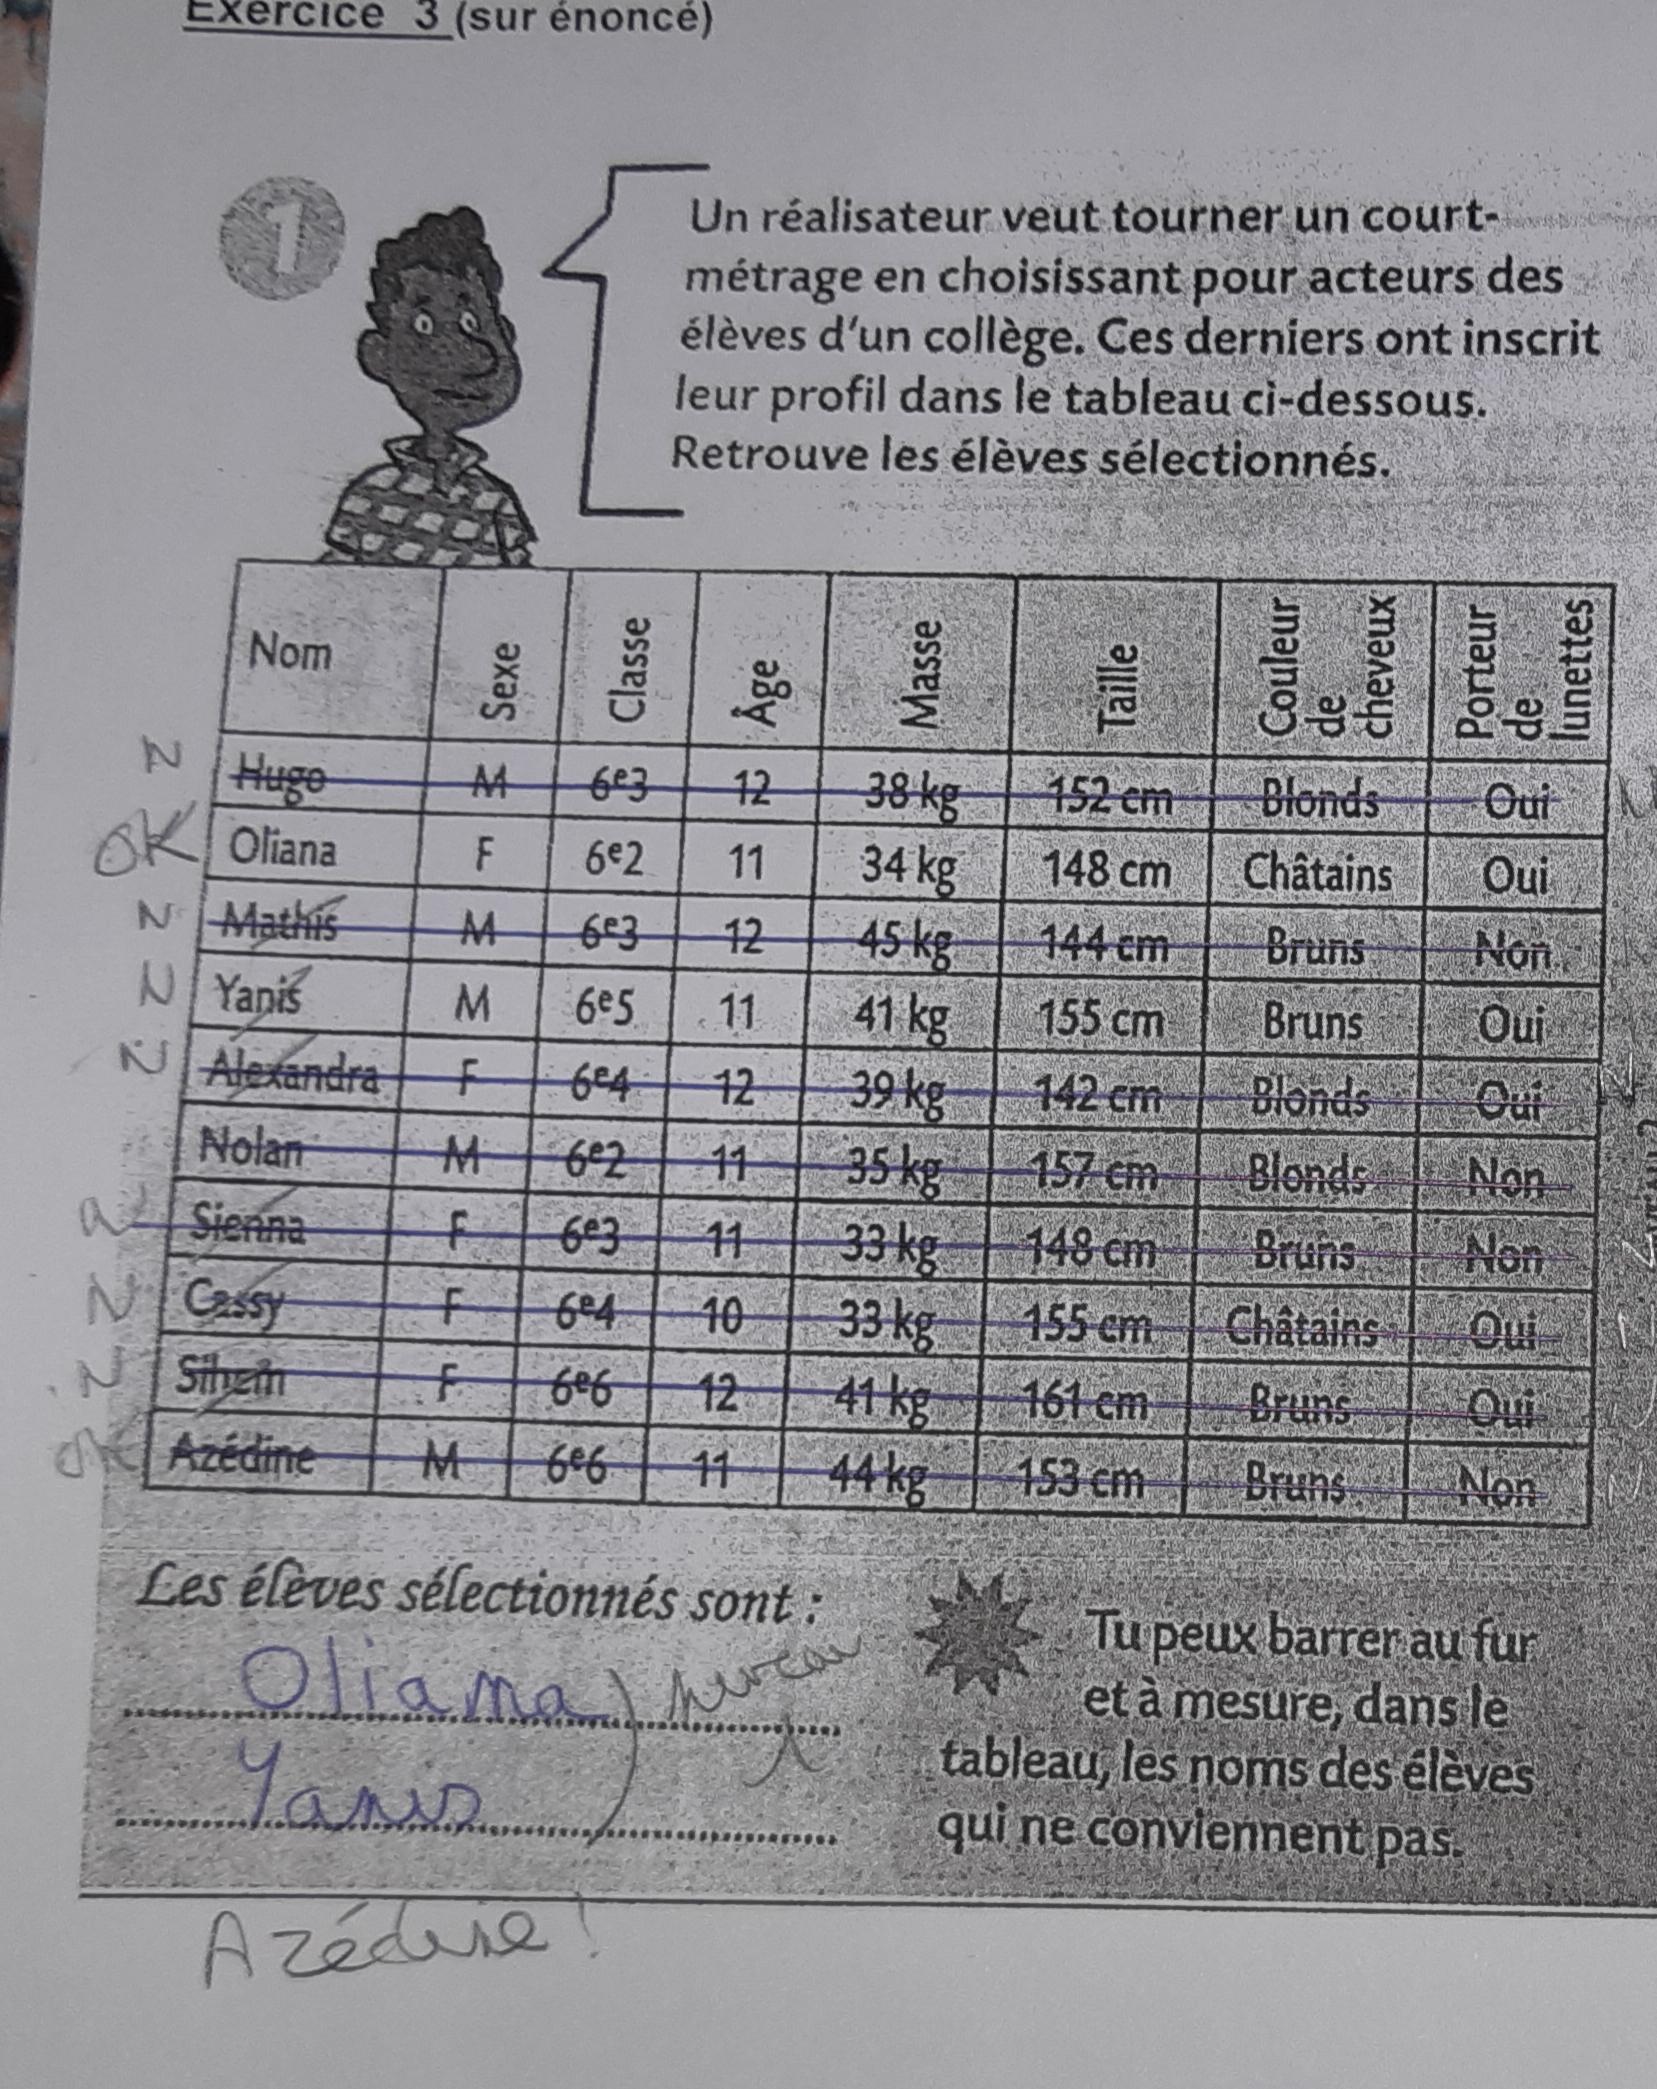 Exercice 3 (sur énoncé)
1
Un réalisateur veut tourner un court-
métrage en choisissant pour acteurs des
élèves d'un collège. Ces derniers ont inscrit
leur profil dans le tableau ci-dessous.
Retrouve les élèves sélectionnés.
Nom Sexe Classe Âge Masse Taille Couleur de cheveux Porteur de lunettes
N Hugo M 6e3 12 38 kg 152 cm Blonds Oui
OK Oliana F 6e2 11 34 kg 148 cm Châtains Oui
N Mathis M 6e3 12 45 kg 144 cm Bruns Non
N Yanis M 6e5 11 41 kg 155 cm Bruns Oui
N Alexandra F 6e4 12 39 kg 142 cm Blonds Oui
Nolan M 6e2 11 35 kg 157 cm Blonds Non
Sienna F 6e3 11 33 kg 148 cm Bruns Non
N Cassy F 6e4 10 33 kg 155 cm Châtains Oui
N Sihem F 6e6 12 41 kg 161 cm Bruns Oui
OK Azédine M 6e6 11 44 kg 153 cm Bruns Non
Les élèves sélectionnés sont :
Oliana
Yanis
Tu peux barrer au fur
et à mesure, dans le
tableau, les noms des élèves
qui ne conviennent pas.
Azédine !